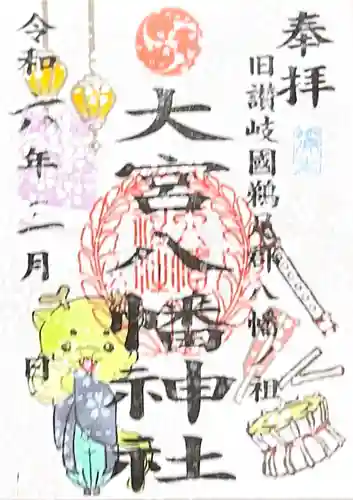 奉拝
旧讃岐國鵜足郡八幡ノ祖
大宮八幡神社
令和八年二月 日